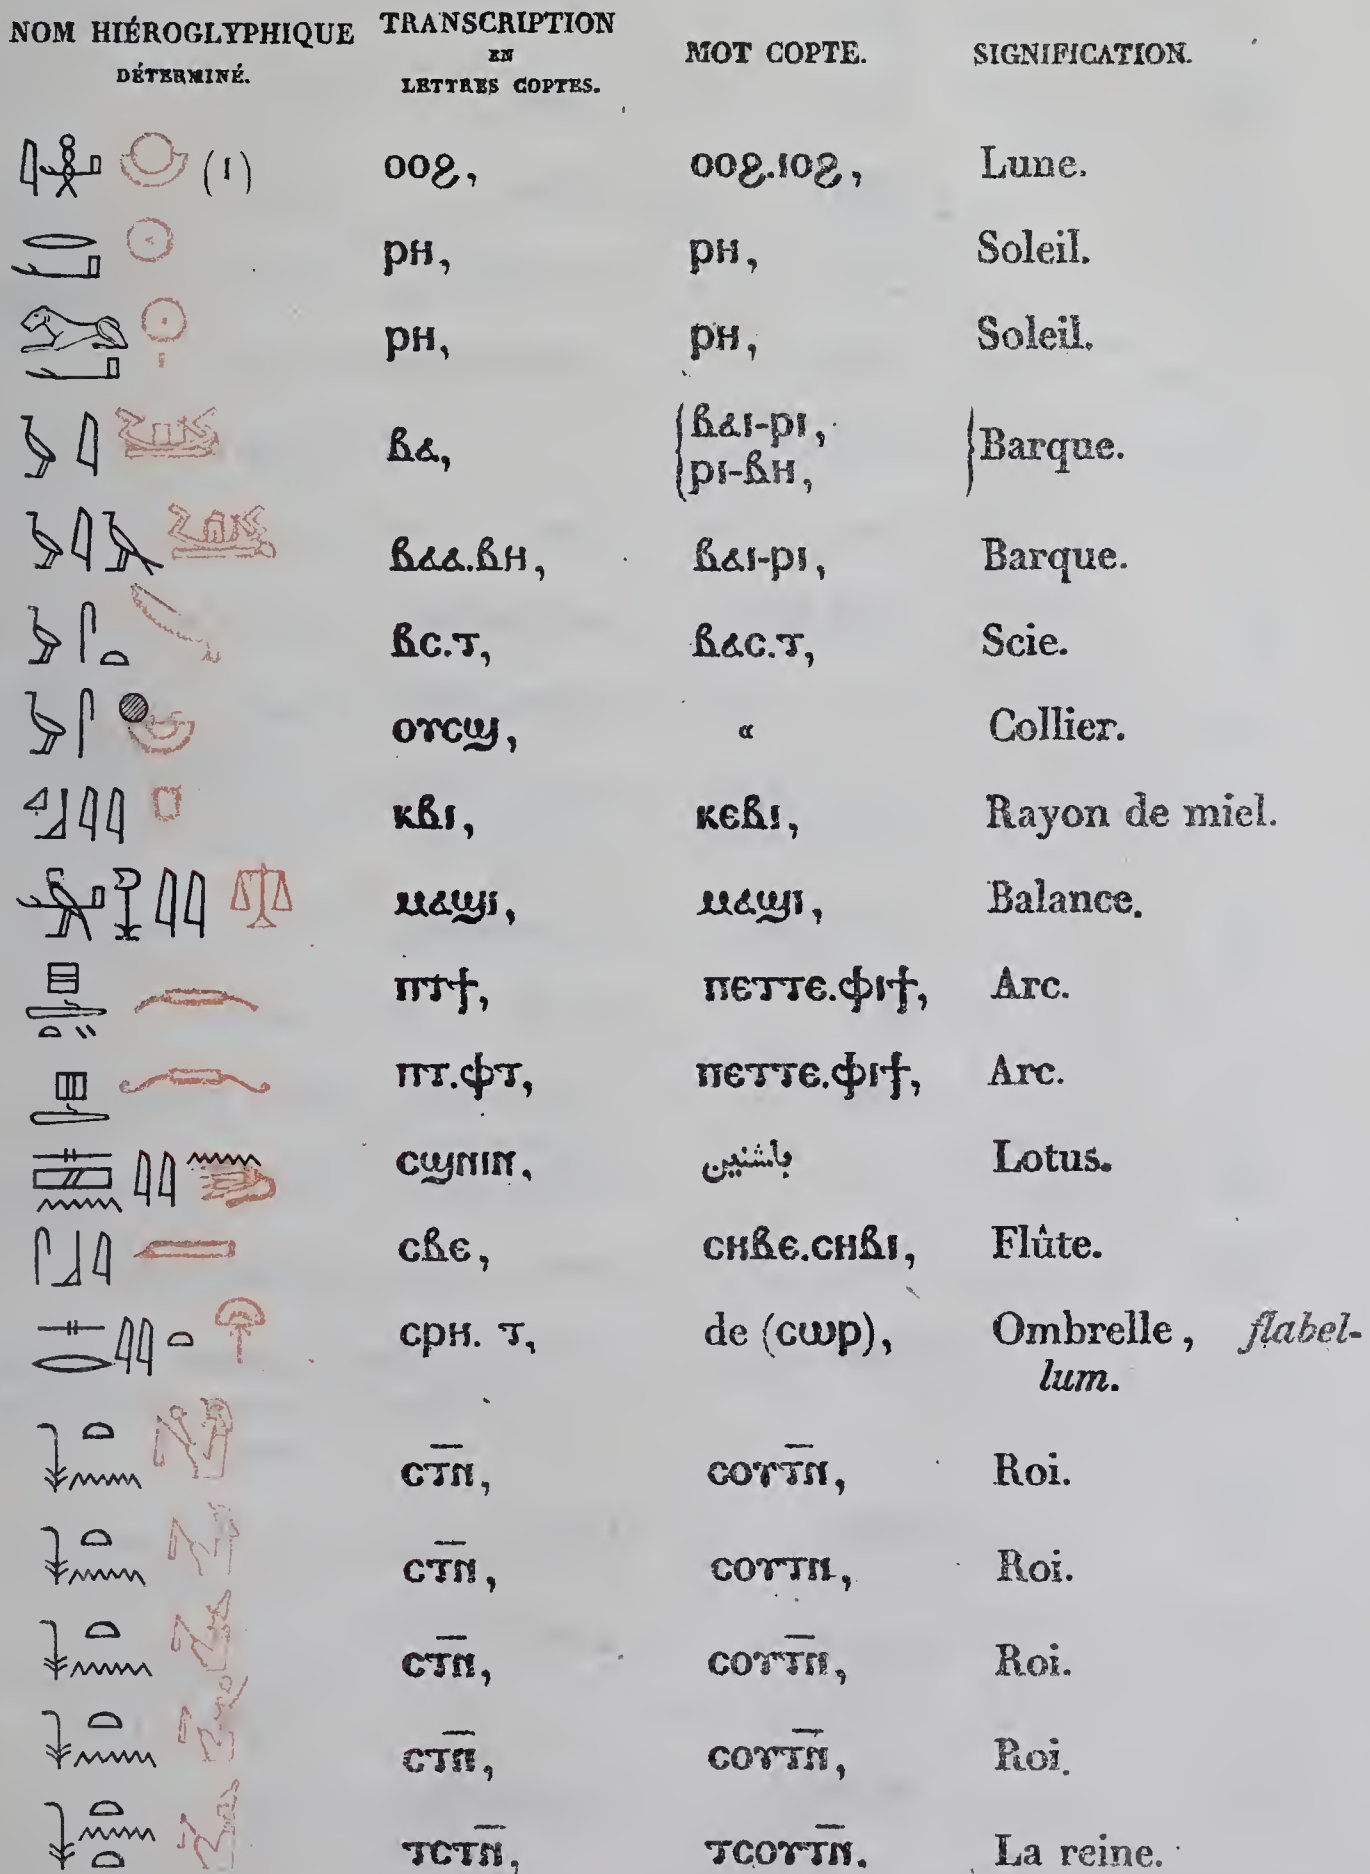 NOM HIÉROGLYPHIQUE DÉTERMINÉ. TRANSCRIPTION EN LETTRES COPTES. MOT COPTE. SIGNIFICATION.
(1) ⲟⲟϩ, ⲟⲟϩ.ⲓⲟϩ, Lune.
ⲣⲏ, ⲣⲏ, Soleil.
ⲣⲏ, ⲣⲏ, Soleil.
ⲃⲁ, { ⲃⲁⲓ-ⲣⲓ, ⲣⲓ-ⲃⲏ, } Barque.
ⲃⲁⲁ.ⲃⲏ, ⲃⲁⲓ-ⲣⲓ, Barque.
ⲃⲥ.ⲧ, ⲃⲁⲥ.ⲧ, Scie.
ⲟⲩⲥϣ, « Collier.
ⲕⲃⲓ, ⲕⲉⲃⲓ, Rayon de miel.
ⲙⲁϣⲓ, ⲙⲁϣⲓ, Balance.
ⲡⲧϯ, ⲡⲉⲧⲧⲉ.ⲫⲓϯ, Arc.
ⲡⲧ.ⲫⲧ, ⲡⲉⲧⲧⲉ.ⲫⲓϯ, Arc.
ⲥϣⲛⲓⲛ, باشنين Lotus.
ⲥⲃⲉ, ⲥⲏⲃⲉ.ⲥⲏⲃⲓ, Flûte.
ⲥⲣⲏ. ⲧ, de (ⲥⲱⲣ), Ombrelle, flabel-
lum.
ⲥⲧ̅ⲛ̅, ⲥⲟⲩⲧ̅ⲛ̅, Roi.
ⲥⲧ̅ⲛ̅, ⲥⲟⲩⲧⲛ, Roi.
ⲥⲧ̅ⲛ̅, ⲥⲟⲩⲧ̅ⲛ̅, Roi.
ⲥⲧ̅ⲛ̅, ⲥⲟⲩⲧ̅ⲛ̅, Roi.
ⲧⲥⲧ̅ⲛ̅, ⲧⲥⲟⲩⲧ̅ⲛ̅. La reine.